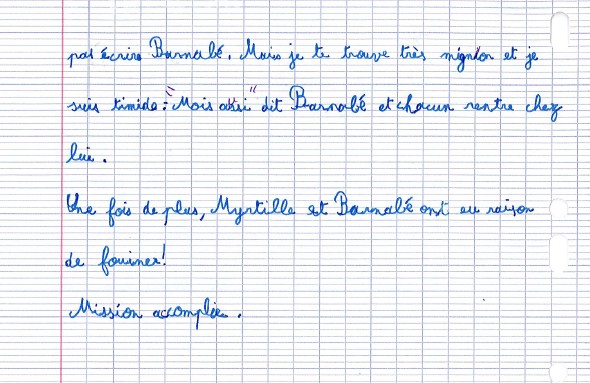 pas écrire Barnabé. Mais je te trouve très mignon et je
suis timide : "Mois aussi" dit Barnabé et chacun rentre chez
lui.
Une fois de plus, Myrtille et Barnabé ont eu raison
de fouiner!
Mission accomplie.